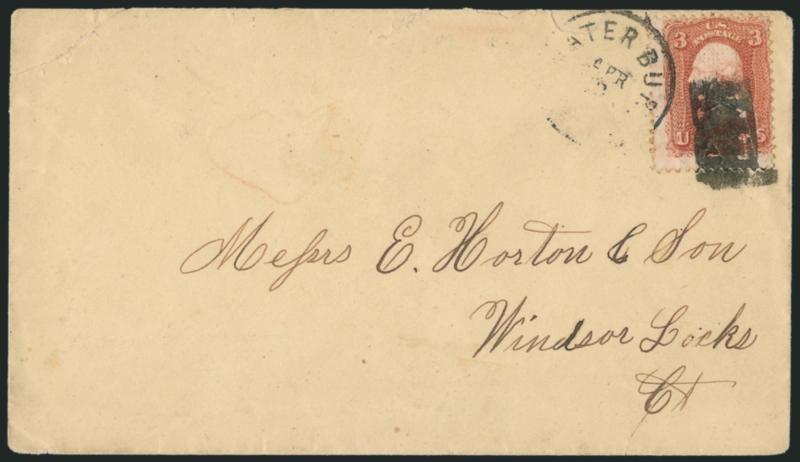 ATERBU
APR
3 U.S. 3
POSTAGE
U S
Messrs E. Horton & Son
Windsor Locks
Ct